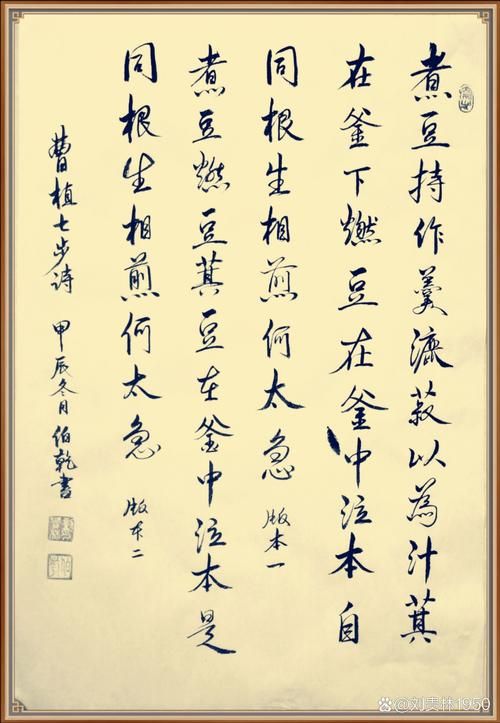 煮豆持作羹漉菽以為汁萁
在釜下燃豆在釜中泣本自
同根生相煎何太急 版本一
煮豆燃豆萁豆在釜中泣本是
同根生相煎何太急 版本二
曹植七步诗 甲辰冬月伯乾書
@刘贵林1950